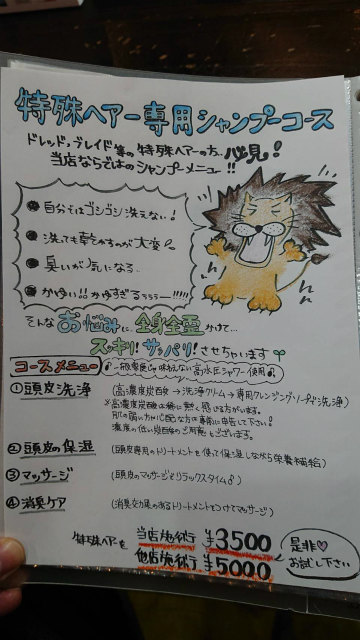 特殊ヘアー専用シャンプーコース
ドレッド、ブレイド等の特殊ヘアーの方、必見！
当店ならではのシャンプーメニュー!!
自分ではゴシゴシ洗えない！
洗っても乾かすのが大変
臭いが気になる
かゆい!!かゆすぎるぅぅぅー!!!!!
そんなお悩みに、全身全霊かけて…
スッキリ！サッパリ！させちゃいます
コースメニュー 一般家庭じゃ味わえない高水圧シャワー使用♪
①頭皮洗浄 (高濃度炭酸→洗浄クリーム→専用クレンジングリーディング洗浄)
※高濃度炭酸は稀に熱く感じる方がいます。
肌の弱い方や心配な方は事前に申告して下さい！
濃度の低い炭酸のご用意もございます。
②頭皮の保湿 (頭皮専用のトリートメントを使って保湿しながら栄養補給)
③マッサージ (頭皮のマッサージでリラックスタイム♪)
④消臭ケア (消臭効果のあるトリートメントをつけてマッサージ)
特殊ヘアーを 当店施術 ¥3500
他店施術 ¥5000
是非♡
お試し下さい